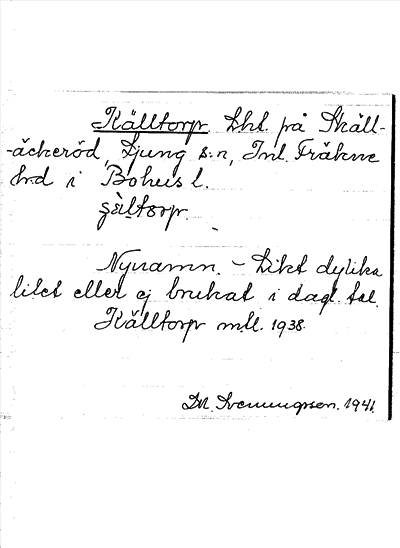 Källtorp Lht. på Skäll-
-äckeröd, Ljung s:n, Inl. Fräkne
hd i Bohus l.
Nynamn. – Likt dylika
litet eller ej brukat i dagl. tal.
Källtorp m.ll. 1938.
1941.